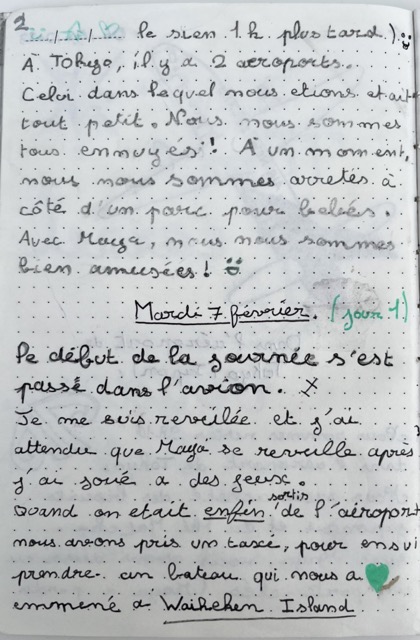 2
.../.../... le sien 1 h plus tard.)
À Tokyo, il y a 2 aeroports.
Celoi dans lequel nous etions etait
tout petit. Nous nous sommes
tous ennuyes! À un moment,
nous nous sommes arretés à
côté d'un parc pour bébés.
Avec Maya, nous nous sommes
bien amusées!
Mardi 7 février. (jour 1)
Le début de la journée s'est
passé dans l'avion.
Je me suis reveilée et j'ai
attendu que Maya se reveille après
j'ai joué a des jeux.
Quand on etait enfin sortis de l'aéroport
nous avons pris un taxi, pour ensui
prendre un bateau qui nous a
emmené a Waiheken Island